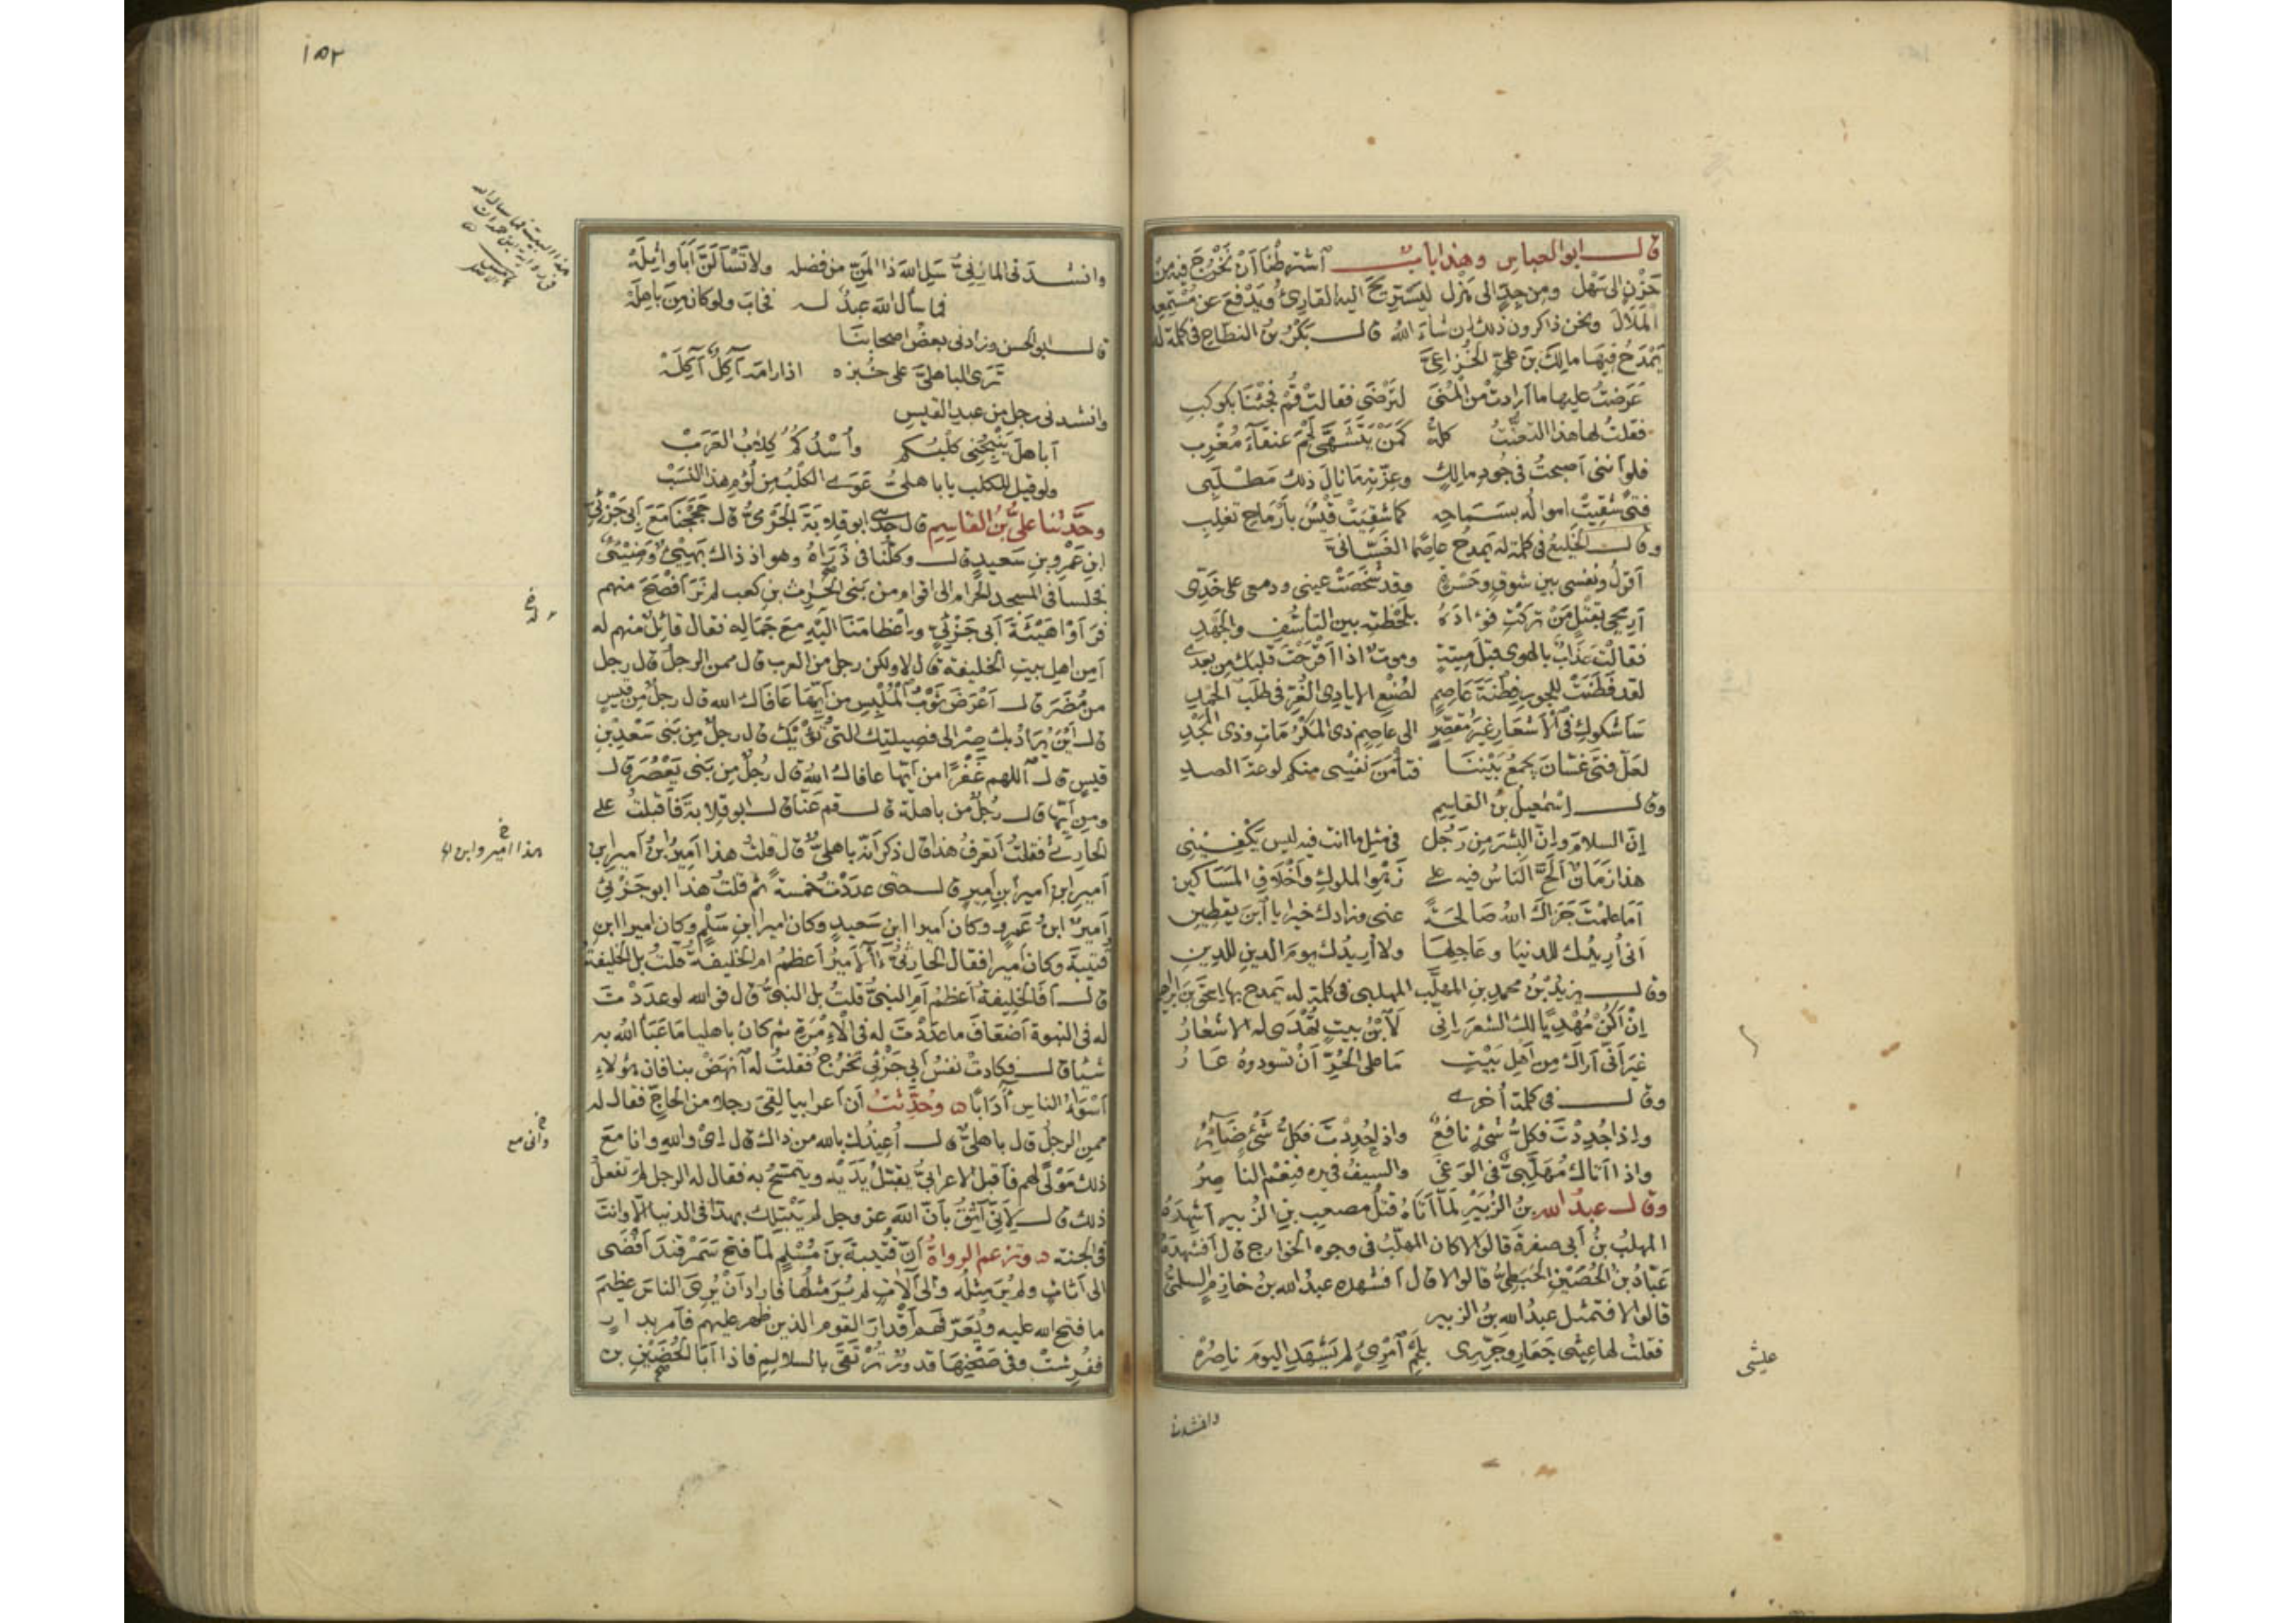 قال ابو العباس وهذا باب اشترطنا أن نخرج فيه من
حزن الى سهل ومن جد الى هزل ليستريح اليه القارئ ويدفع عن مستمعه
الملال ونحن ذاكرون ذلك إن شاء الله قال بكر بن النطاح في كلمة له
يمدح فيها مالك بن علي الخزاعي
عرضت عليها ما أرادت من المنى لترضى فقالت قم فجئنا بكوكب
فقلت لها هذا التعنت كله كمن يتشهى لحم عنقاء مغرب
فلو أنني أصبحت في جود مالك وعزته ما نال ذلك مطلبي
فتى شقيت امواله بسماحه كما شقيت قيس بأرماح تغلب
وقال الخليع في كلمة له يمدح عاصما الغساني
أقول ونفسي بين شوق وحسرة وقد شخصت عيني ودمعي على خدي
أريحي بقتل من تركت فؤاده بلحظته بين التأسف والجهد
فقالت عذاب بالهوى قبل ميتة وموت اذا اقرحت قلبك من بعدي
لقد فطنت للجور فطنة عاصم لصنع الايادي الغر في طلب الحمد
سأشكوك في الأشعار غير مقصر الى عاصم ذي المكرمات وذي المجد
لعل فتى غسان يجمع بيننا فتأمن نفسي منكم لوعة الصد
وقال إسمعيل بن القاسم
إن السلام وإن البشر من رجل في مثل ما انت فيه ليس يكفيني
هذا زمان ألح الناس فيه على زهو الملوك وأخلاق المساكين
أما علمت جزاك الله صالحة عني وزادك خيرا يا ابن يقطين
أني أريدك للدنيا وعاجلها ولا أريدك يوم الدين للدين
وقال يزيد بن محمد بن المهلب المهلبي في كلمة له يمدح بها اسحق بن ابراهيم
إن أكن مهديا لك الشعر إني لابن بيت تهدى له الاشعار
غير أني أراك من أهل بيت ما على الحر أن تسودوه عار
وقال في كلمة أخرى
وإذا جددت فكل شئ نافع وإذا حددت فكل شئ ضائر
واذا أتاك مهلبي في الوغى والسيف في يده فنعم الناصر
وقال عبد الله بن الزبير لما أتاه قتل مصعب بن الزبير أشهده
المهلب بن أبي صفرة قالوا لا كان المهلب في وجوه الخوارج قال أفشهده
عباد بن الحصين الحبطي قالوا لا قال أفشهده عبد الله بن خازم السلمي
قالوا لا فتمثل عبد الله بن الزبير
فقلت لها عيثي جعار وجرري بلحم امرئ لم يشهد اليوم ناصره
عيشي
وانشدنى
١٥٢
وانشدنى المازني سل الله ذا المن من فضله ولا تسألن أبا واثله
فما سأل الله عبد له فخاب ولو كان من باهله
قال ابو الحسن وزادنى بعض اصحابنا
ترى الباهلي على خبزه اذا رامه آكل آكله
وانشدنى رجل من عبد القيس
أباهل ينبحني كلبكم وأسدكم ككلاب العرب
ولو قيل للكلب يا باهلي عوى الكلب من لؤم هذا النسب
وحدثنا علي بن القاسم قال حدثني ابو قلابة الجرمي قال حججنا مع أبي جزئ
ابن عمرو بن سعيد قال وكنا في ذراه وهو اذ ذاك بهي وضئ
فجلسنا في المسجد الحرام الى اقوام من بني الحرث بن كعب لم نر أفصح منهم
فرأوا هيئة أبي جزئ واعظامنا اليه مع جماله فقال قائل منهم له
أمن اهل بيت الخليفة قال لا ولكن رجل من العرب قال ممن الرجل قال رجل
من مضر قال أعرض ثوب الملبس من أيها عافاك الله قال رجل من قيس
قال أين يراد بك صر الى فصيلتك التي تؤويك قال رجل من بني سعد بن
قيس قال اللهم غفرا من أيها عافاك الله قال رجل من بني يعصر قال
ومن أيها قال رجل من باهلة قال قم عنا قال ابو قلابة فأقبلت على
الحارثي فقلت أتعرف هذا قال ذكر أنه باهلي قال قلت هذا أمير ابن أمير ابن
أمير ابن أمير ابن أمير قال حتى عددت خمسة ثم قلت هذا ابو جزئ
أمير ابن عمرو وكان أميرا ابن سعيد وكان اميرا ابن سلم وكان اميرا ابن
قتيبة وكان أميرا فقال الحارثي آلأمير أعظم ام الخليفة قلت بل الخليفة
قال أفالخليفة أعظم أم النبي قلت بل النبي قال فوالله لو عددت
له في النبوة أضعاف ما عددت له في الإمرة ثم كان باهليا ما عبأ الله به
شيئا قال فكادت نفس أبي جزئ تخرج فقلت له انهض بنا فان هؤلاء
أسوأ الناس آدابا وحدثت أن أعرابيا لقي رجلا من الحاج فقال له
ممن الرجل قال باهلي قال أعيذك بالله من ذاك قال إى والله وانا مع
ذلك مولى لهم فأقبل الاعرابي يقبل يديه ويتمسح به فقال له الرجل لم تفعل
ذلك قال لأني أثق بأن الله عز وجل لم يبتلك بهذا في الدنيا إلا وانت
في الجنة وتزعم الرواة أن قتيبة بن مسلم لما فتح سمرقند أفضى
الى أثاث لم ير مثله والى آلات لم ير مثلها فاراد أن يرى الناس عظيم
ما فتح الله عليه ويعرفهم أقدار القوم الذين ظهر عليهم فأمر بدار
ففرشت وفي صحنها قدور ترتقى بالسلاليم فاذا أبا الحضين بن
هذا أمير وابن
وأنى مع